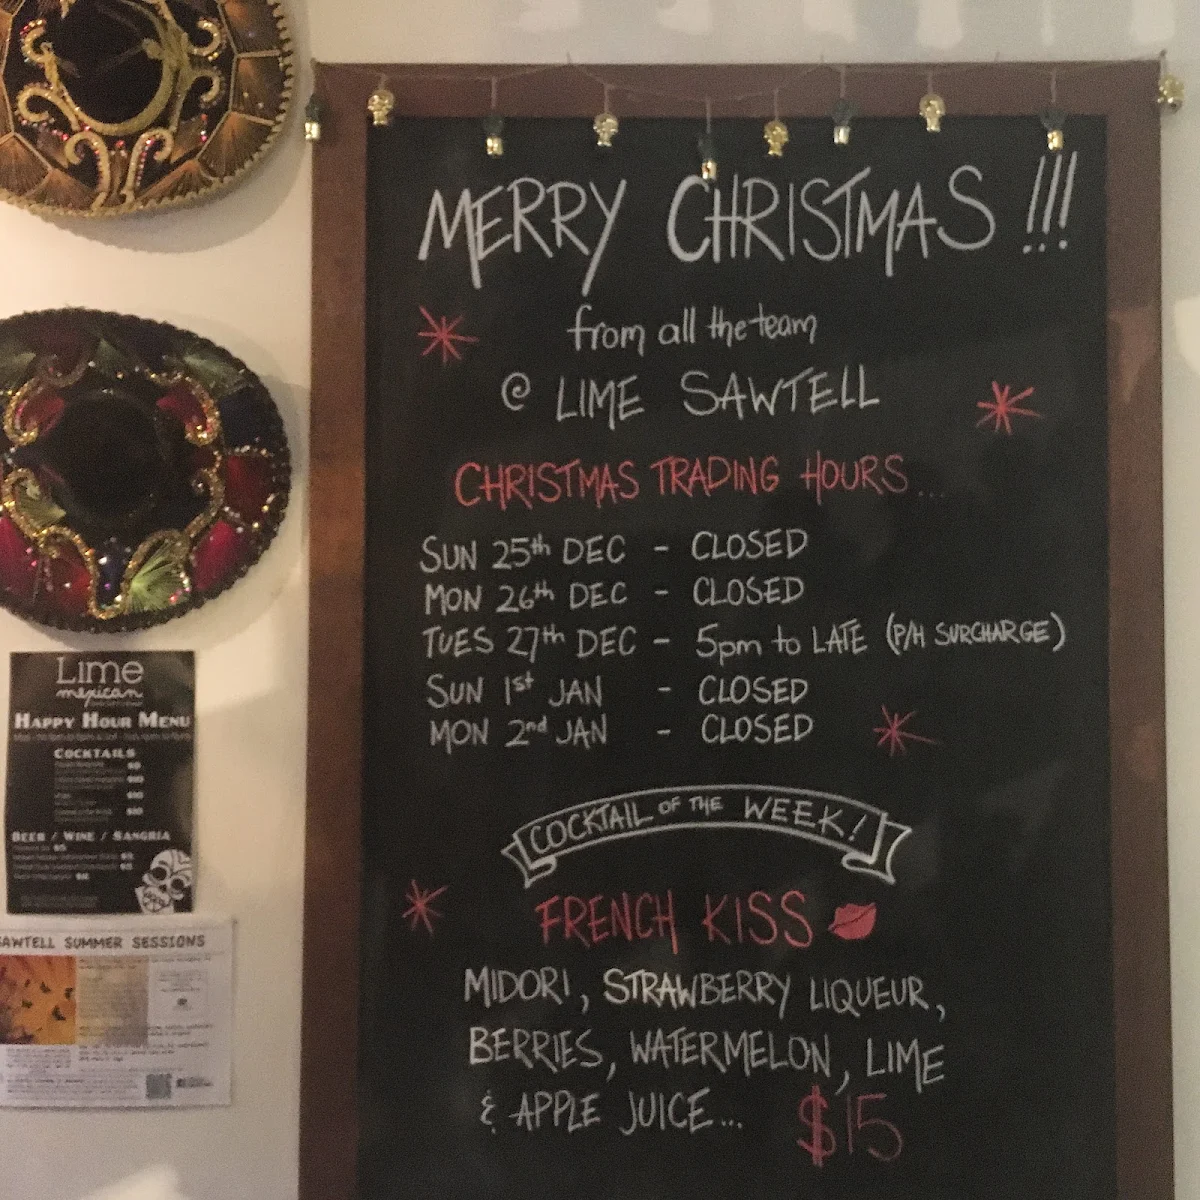 MERRY CHRISTMAS !!!
from all the team
@ LIME SAWTELL
CHRISTMAS TRADING HOURS...
SUN 25th DEC - CLOSED
MON 26th DEC - CLOSED
TUES 27th DEC - 5pm to LATE (P/H SURCHARGE)
SUN 1st JAN - CLOSED
MON 2nd JAN - CLOSED
COCKTAIL OF THE WEEK!
FRENCH KISS
MIDORI, STRAWBERRY LIQUEUR,
BERRIES, WATERMELON, LIME
& APPLE JUICE... $15
Lime
mexican
HAPPY HOUR MENU
COCKTAILS
BEER / WINE / SANGRIA
SAWTELL SUMMER SESSIONS